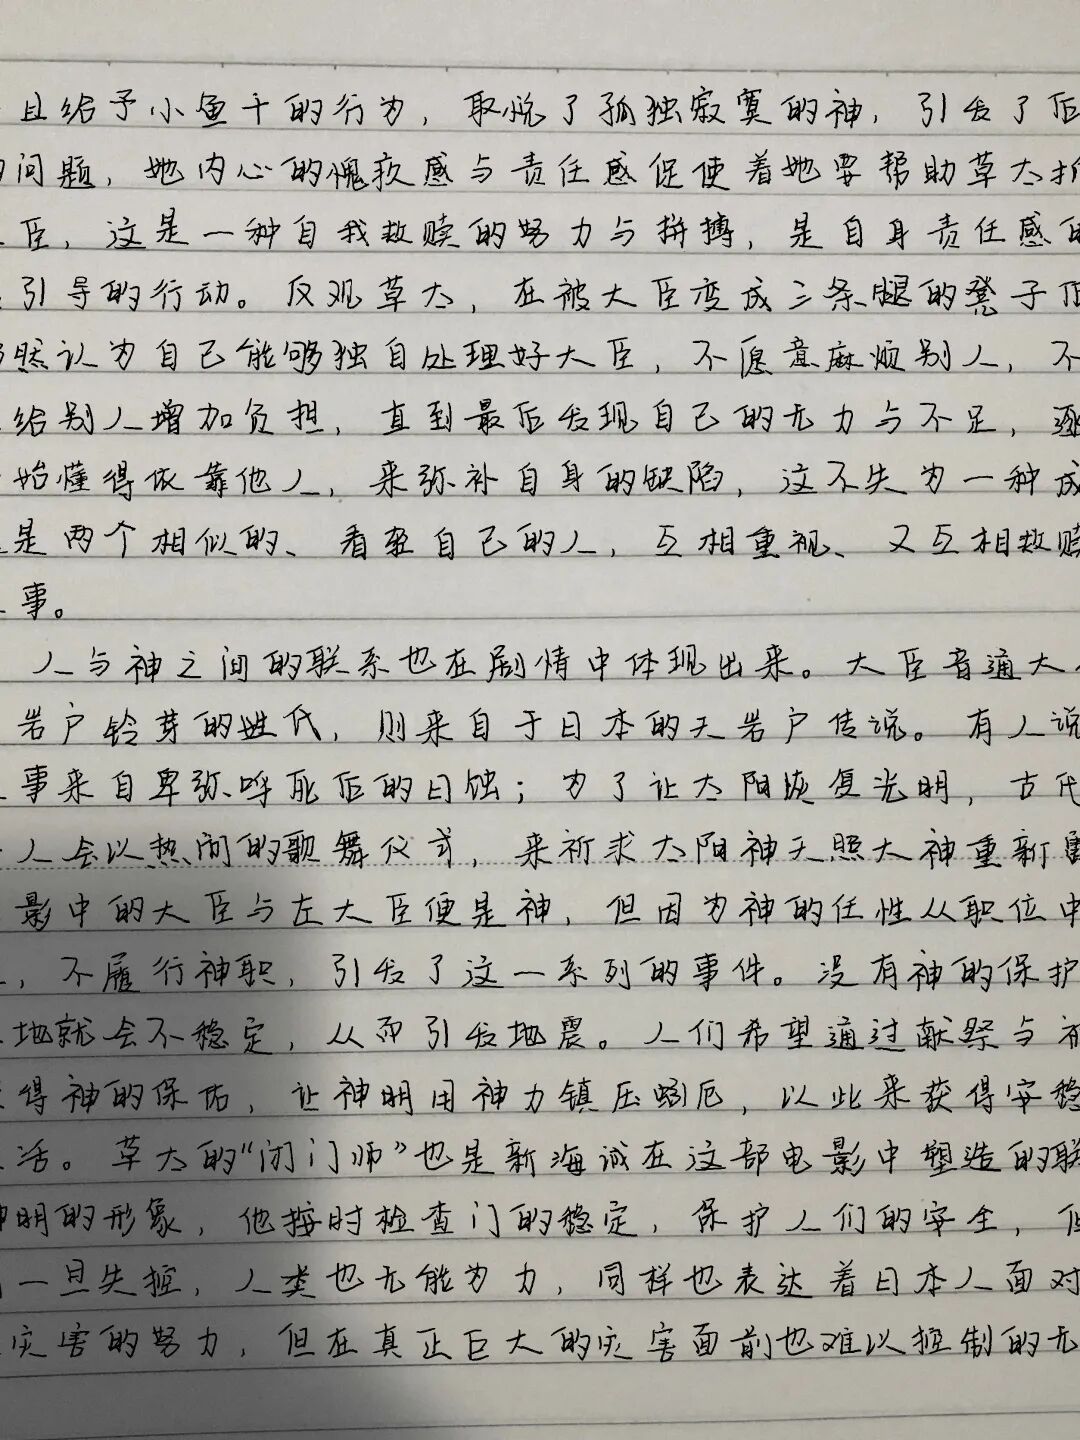 且给予小鱼干的行为，取悦了孤独寂寞的神，引发了后
问题，她内心的愧疚感与责任感促使着她要帮助草太抓
臣，这是一种自我救赎的努力与拼搏，是自身责任感的
引导的行动。反观草太，在被大臣变成三条腿的凳子后
然认为自己能够独自处理好大臣，不愿意麻烦别人，不
给别人增加负担，直到最后发现自己的无力与不足，逐
始懂得依靠他人，来弥补自身的缺陷，这不失为一种成
是两个相似的、看轻自己的人，互相重视、又互相救赎
事。
人与神之间的联系也在剧情中体现出来。大臣音通大
岩户铃芽的姓氏，则来自于日本的天岩户传说。有人说
事来自卑弥呼死后的日蚀；为了让太阳恢复光明，古代
人会以热闹的歌舞仪式，来祈求太阳神天照大神重新露
影中的大臣与左大臣便是神，但因为神的任性从职位中
，不履行神职，引发了这一系列的事件。没有神的保护
地就会不稳定，从而引发地震。人们希望通过献祭与祈
得神的保佑，让神明用神力镇压蚓厄，以此来获得安稳
活。草太的“闭门师”也是新海诚在这部电影中塑造的联
明的形象，他按时检查门的稳定，保护人们的安全，但
一旦失控，人类也无能为力，同样也表达着日本人面对
灾害的努力，但在真正巨大的灾害面前也难以控制的无